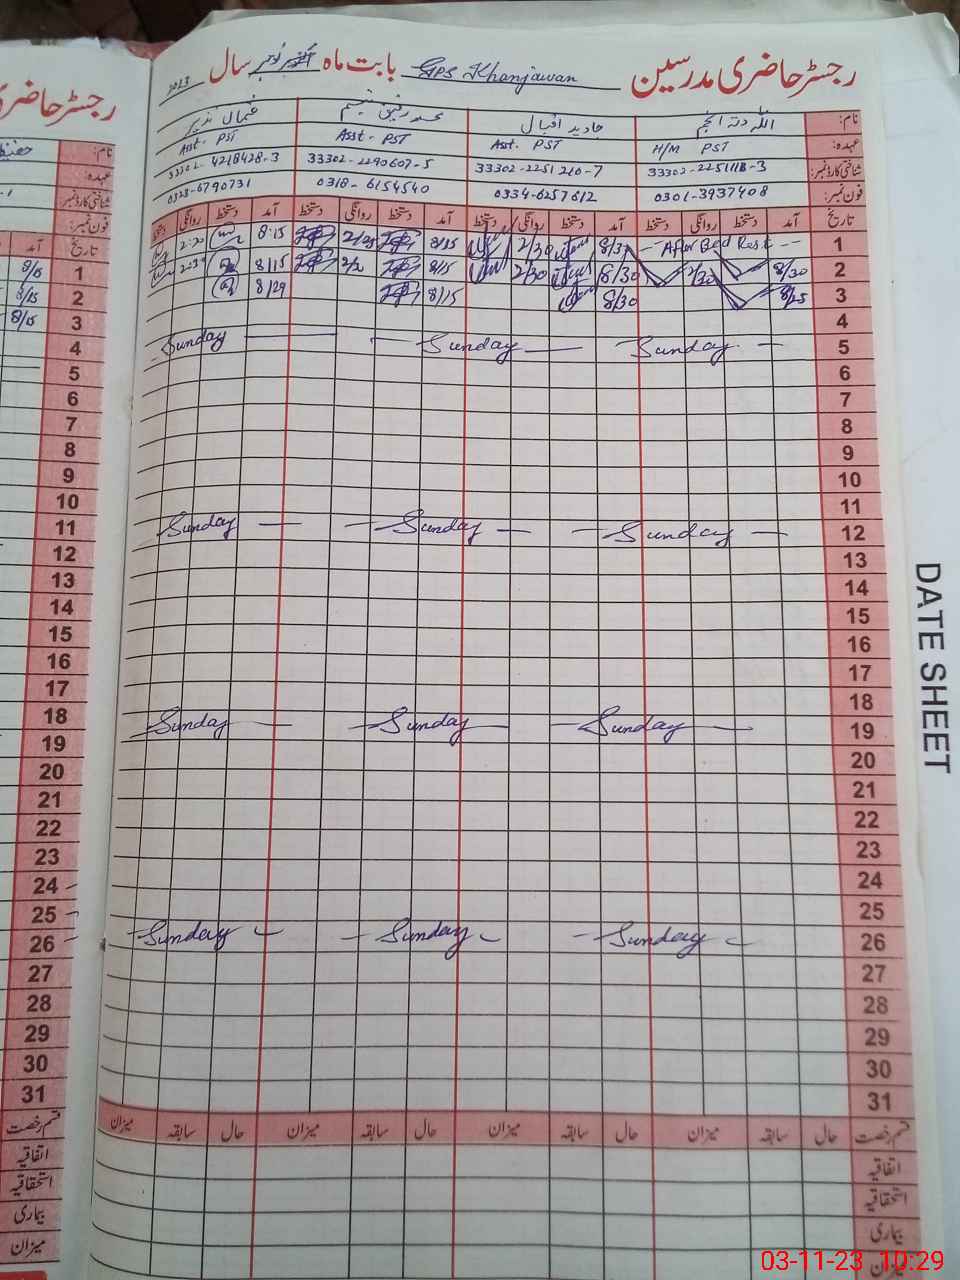 رجسٹر حاضری مدرسین GPS Khanjawan بابت ماہ نومبر سال 2023
نام: اللہ دتہ انجم جاوید اقبال محمد رفیق تبسم نذیر
عہدہ: H/M PST Asst. PST Asst. PST Asst. PST
شناختی کارڈ نمبر: 33302-2251118-3 33302-2251210-7 33302-2290607-5 33302-4218428-3
فون نمبر: 0301-3937408 0334-6257612 0318-6154540 0323-6790731
تاریخ آمد دستخط روانگی دستخط آمد دستخط روانگی دستخط آمد دستخط روانگی دستخط آمد دستخط روانگی دستخط
1 -- After Bed Rest -- 8/30 2/30 8/15 8:15 2:30
2 8/30 2/30 8/30 2/30 8/15 8/15
3 8/25 8/30 8/15 8/29
4
5 Sunday Sunday Sunday
6
7
8
9
10
11
12 Sunday Sunday Sunday
13
14
15
16
17
18
19 Sunday Sunday Sunday
20
21
22
23
24
25
26 Sunday Sunday Sunday
27
28
29
30
31
قسم رخصت حال سابقہ میزان حال سابقہ میزان حال سابقہ میزان حال سابقہ میزان
اتفاقیہ
استحقاقیہ
بیماری
میزان
رجسٹر حاضری
نام:
عہدہ:
شناختی کارڈ نمبر:
فون نمبر:
تاریخ آمد
1 8/15
2 8/15
3 8/15
4
5
6
7
8
9
10
11
12
13
14
15
16
17
18
19
20
21
22
23
24
25
26
27
28
29
30
31
قسم رخصت
اتفاقیہ
استحقاقیہ
بیماری
میزان
DATE SHEET
03-11-23 10:29